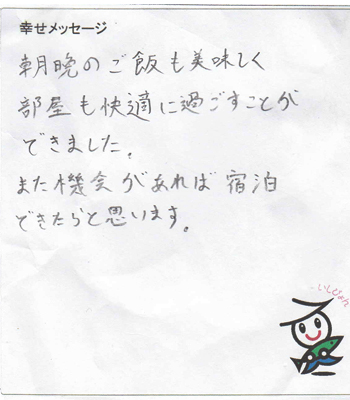 幸せメッセージ
朝晩のご飯も美味しく
部屋も快適に過ごすことが
できました。
また機会があれば宿泊
できたらと思います。
いしぴょん